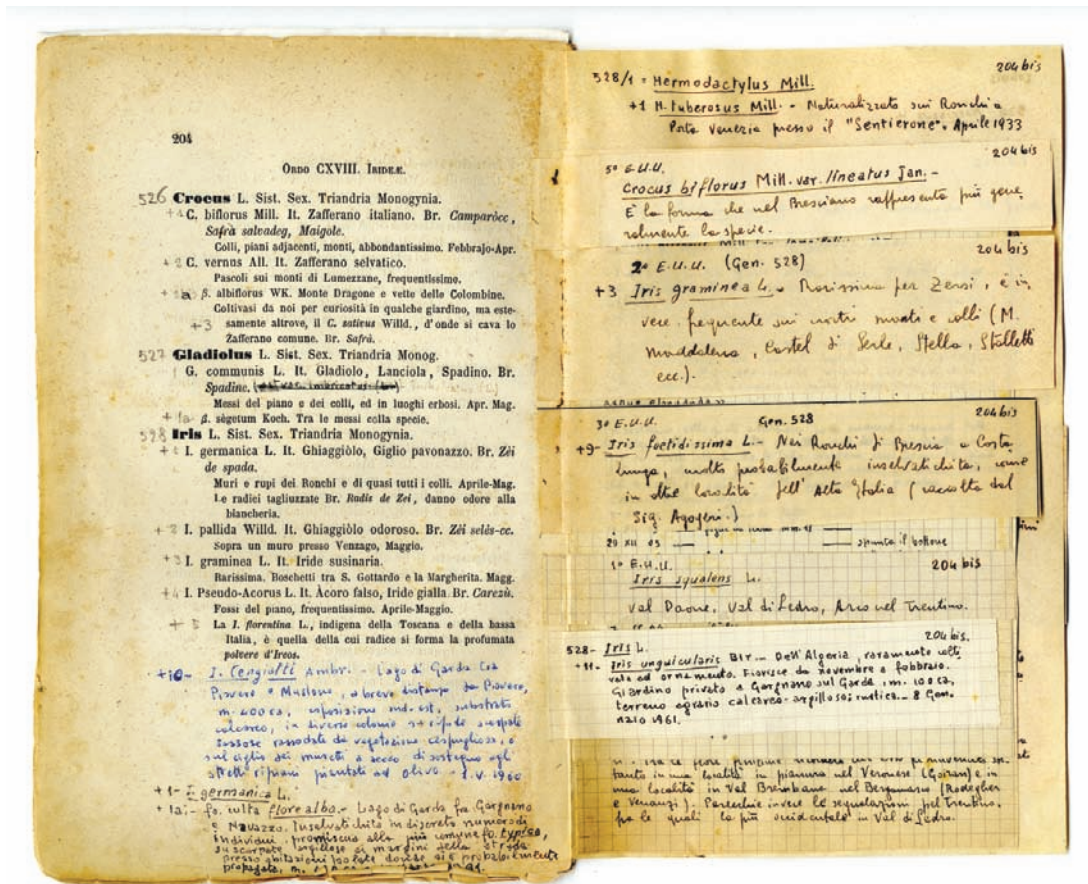 204
ORDO CXVIII. IRIDEÆ.
526 Crocus L. Sist. Sex. Triandria Monogynia.
+1 C. biflorus Mill. It. Zafferano italiano. Br. Camparòcc,
Safrà salvadeg, Maigole.
Colli, piani adjacenti, monti, abbondantissimo. Febbrajo-Apr.
+2 C. vernus All. It. Zafferano selvatico.
Pascoli sui monti di Lumezzane, frequentissimo.
β. albiflorus WK. Monte Dragone e vette delle Colombine.
Coltivasi da noi per curiosità in qualche giardino, ma este-
+3 samente altrove, il C. sativus Willd., d'onde si cava lo
Zafferano comune. Br. Safrà.
527 Gladiolus L. Sist. Sex. Triandria Monog.
G. communis L. It. Gladiolo, Lanciola, Spadino. Br.
Spadine.
Messi del piano e dei colli, ed in luoghi erbosi. Apr. Mag.
+1a β. sègetum Koch. Tra le messi colla specie.
528 Iris L. Sist. Sex. Triandria Monogynia.
+1 I. germanica L. It. Ghiaggiòlo, Giglio pavonazzo. Br. Zèi
de spada.
Muri e rupi dei Ronchi e di quasi tutti i colli. Aprile-Mag.
Le radici tagliuzzate Br. Radis de Zei, danno odore alla
biancheria.
+2 I. pallida Willd. It. Ghiaggiòlo odoroso. Br. Zèi selès-cc.
Sopra un muro presso Venzago, Maggio.
+3 I. graminea L. It. Iride susinaria.
Rarissima. Boschetti tra S. Gottardo e la Margherita. Magg.
+4 I. Pseudo-Acorus L. It. Àcoro falso, Iride gialla. Br. Carezù.
Fossi del piano, frequentissimo. Aprile-Maggio.
+5 La I. florentina L., indigena della Toscana e della bassa
Italia, è quella della cui radice si forma la profumata
polvere d'Ireos.
+10- I. Cengialti Ambr. - Lago di Garda tra
Piovere e Muslone, a breve distanza da Piovere,
m. 400 ca, esposizione sud-est, substrato
calcareo, in diverse colonie su ripide scarpate
sassose rassodate da vegetazione cespugliosa, e
sul ciglio dei muretti a secco di sostegno agli
stretti ripiani piantati ad olivo - 1.V.1960
+1- I. germanica L.
+1a:- fo. culta flore albo.- Lago di Garda fra Gargnano
e Navazzo. Inselvatichito in discreto numero di
individui, promiscuo alla più comune fo. typica,
su scarpate argillose ai margini della strada
presso abitazioni isolate dove si è probabilmente
propagata, m.
204 bis
528/1 = Hermodactylus Mill.
+1 H. tuberosus Mill. - Naturalizzato sui Ronchi a
Porta Venezia presso il "Sentierone". Aprile 1933
204 bis
5° E.U.U.
Crocus biflorus Mill. var. lineatus Jan.-
È la forma che nel Bresciano rappresenta più gene
ralmente la specie.
204 bis
2° E.U.U. (Gen. 528)
+3 Iris graminea L. - Rarissima per Zersi, è in
vece frequente sui nostri monti e colli (M.
Maddalena, Castel di Serle, Stella, Stalletti
ecc.).
204 bis
3° E.U.U. Gen. 528
+9- Iris foetidissima L.- Nei Ronchi di Brescia a Costa
lunga, molto probabilmente inselvatichita, come
in altre località dell'Alta Italia (raccolta dal
Sig. Agogeri.)
29 XII 03 — — spunta il bottone
1° E.U.U. 204 bis
Iris squalens L.
Val Daone, Val di Ledro, Arco nel Trentino.
204 bis.
528- Iris L.
+11- Iris unguicularis Dir.- Dell'Algeria, raramente colti
vata ad ornamento. Fiorisce da novembre a febbraio.
Giardino privato a Gargnano sul Garda, m. 100 ca,
terreno agrario calcareo-argilloso; rustica.- 8 Gen.
naio 1961.
tanto in una località in pianura nel Veronese (Goiran) e in
una località in Val Brembana nel Bergamasco (Rodegher
e Venanzi). Parecchie invece le segnalazioni pel Trentino,
fra le quali la più occidentale in Val di Ledro.